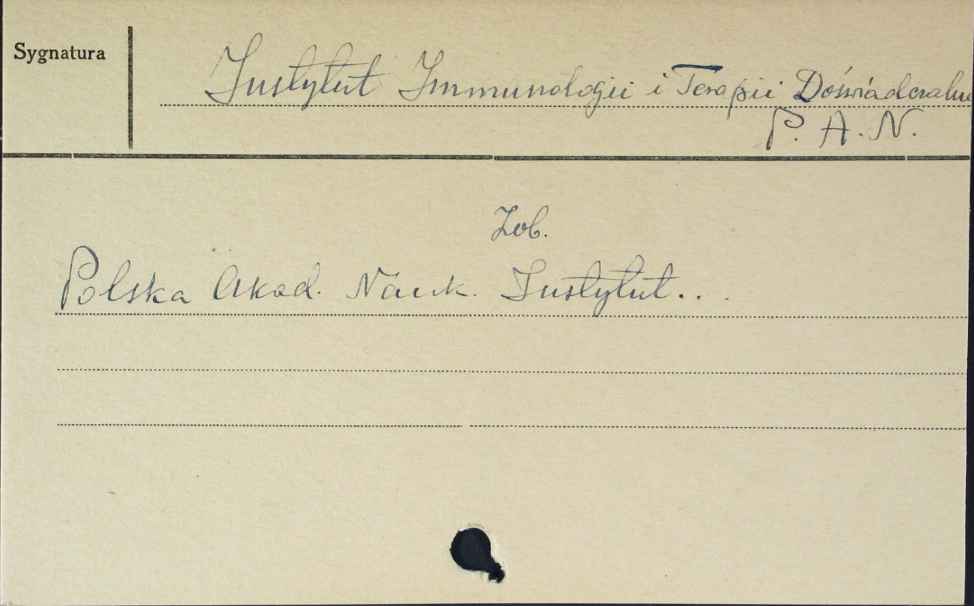 Sygnatura
Instytut Immunologii i Terapii Doświadczalne
P. A. N.
Zob.
Polska Akad. Nauk. Instytut...